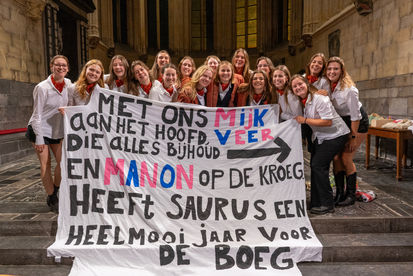 MET ONS MIJK
AAN HET HOOFD VEER
DIE ALLES BIJHOUD
EN MANON OP DE KROEG
HEEFT SAURUS EEN
HEEL MOOI JAAR VOOR
DE BOEG